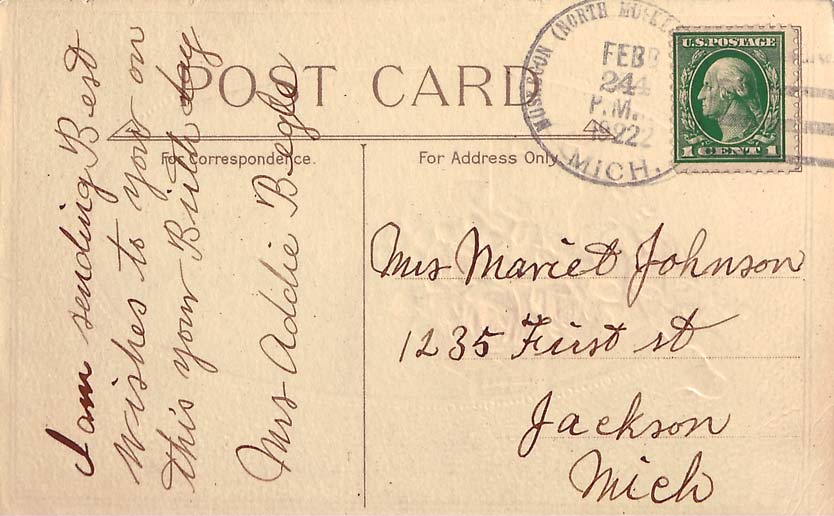 POST CARD
For Correspondence.
For Address Only
MUSKEGON (NORTH
FEB
24
P.M.
1922
MICH.
U.S. POSTAGE
1 CENT 1
I am sending Best
wishes to your on
this your Birth day
Mrs Addie Begle
Mrs Mariet Johnson
1235 First st
Jackson
Mich